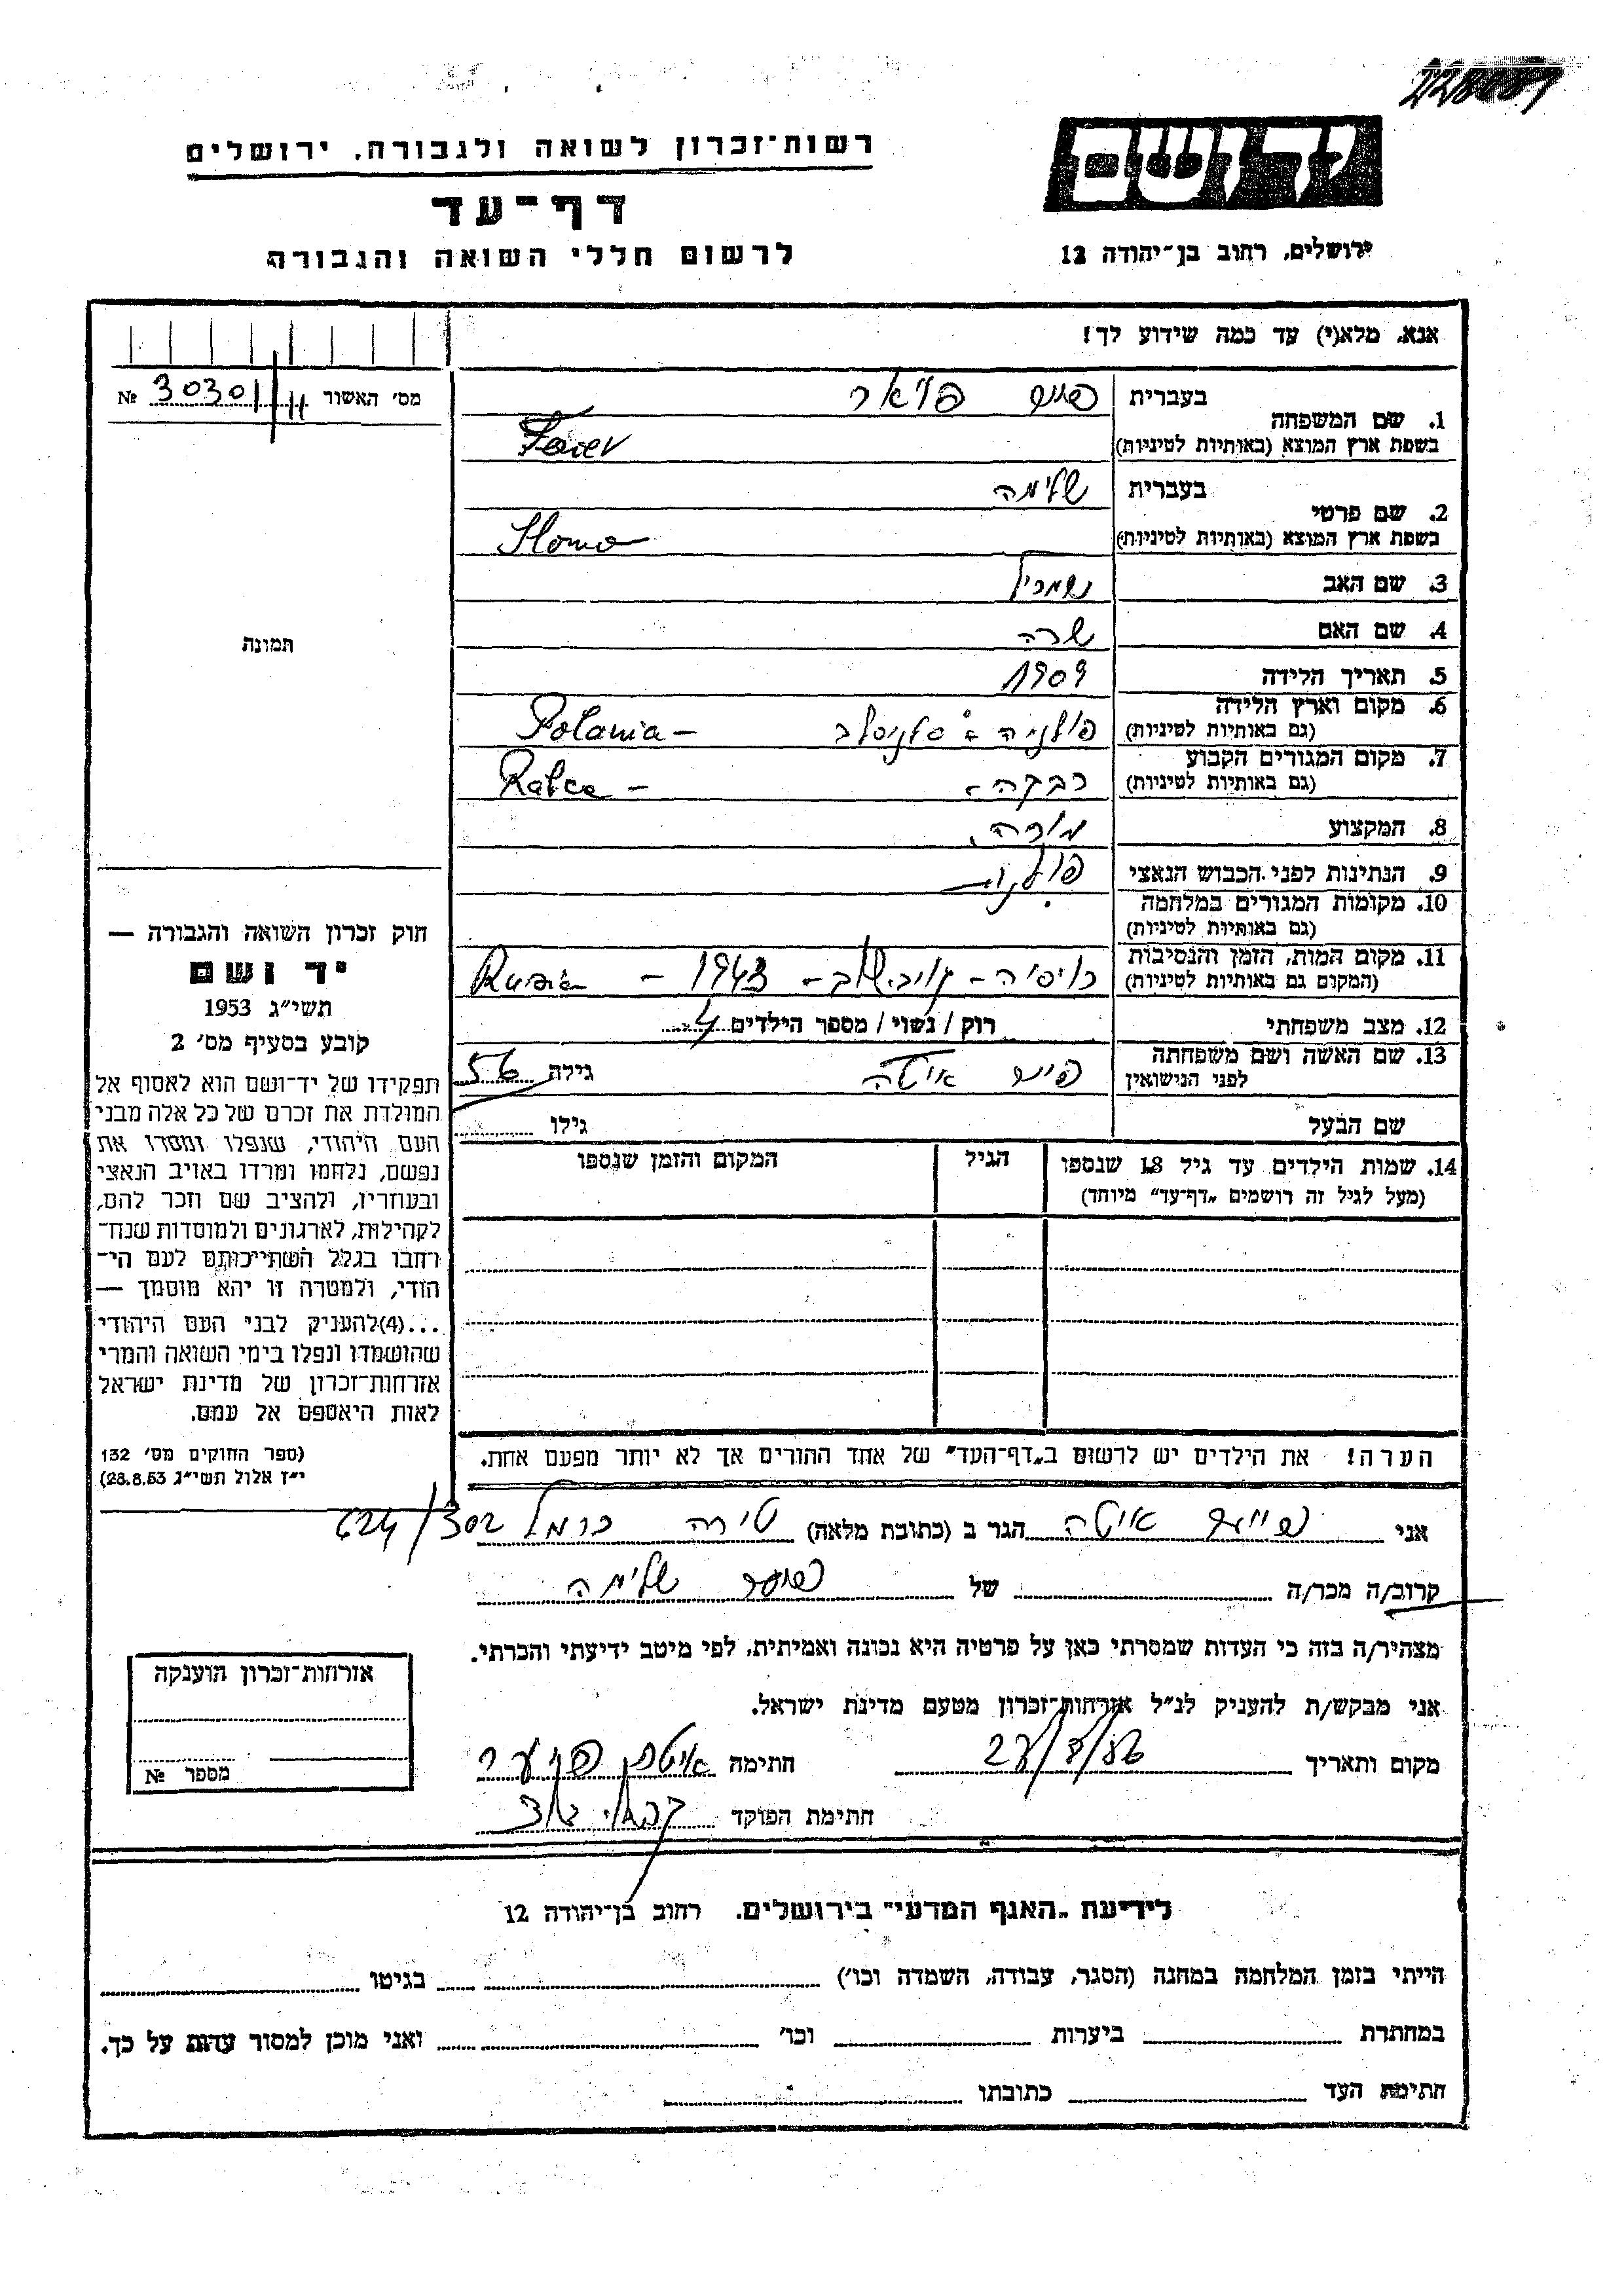 רשות־זכרון לשואה ולגבורה, ירושלים
דף־עד
לרשום חללי השואה והגבורה
יד ושם
ירושלים, רחוב בן־יהודה 12
אנא, מלא(י) עד כמה שידוע לך!
מס׳ האשור № 30301
תמונה
1. שם המשפחה
בעברית
בשפת ארץ המוצא (באותיות לטיניות)
2. שם פרטי
בעברית שלימה
בשפת ארץ המוצא (באותיות לטיניות) Slomo
3. שם האב
4. שם האם שרה
5. תאריך הלידה 1909
6. מקום וארץ הלידה
(גם באותיות לטיניות) פולניה Polania –
7. מקום המגורים הקבוע
(גם באותיות לטיניות) רבקה – Rabce –
8. המקצוע מורה
9. הנתינות לפני הכבוש הנאצי
10. מקומות המגורים במלחמה
(גם באותיות לטיניות)
11. מקום המות, הזמן והנסיבות
(המקום גם באותיות לטיניות) רוסיה – – 1943 –
12. מצב משפחתי רוק / נשוי / מספר הילדים 4
13. שם האשה ושם משפחתה
לפני הנישואין איטה גילה 56
שם הבעל גילו
14. שמות הילדים עד גיל 18 שנספו
(מעל לגיל זה רושמים „דף־עד” מיוחד)
הגיל
המקום והזמן שנספו
הערה! את הילדים יש לרשום ב„דף־העד” של אחד ההורים אך לא יותר מפעם אחת.
חוק זכרון השואה והגבורה —
יד ושם
תשי״ג 1953
קובע בסעיף מס׳ 2
תפקידו של יד־ושם הוא לאסוף אל
המולדת את זכרם של כל אלה מבני
העם היהודי, שנפלו ומסרו את
נפשם, נלחמו ומרדו באויב הנאצי
ובעוזריו, ולהציב שם וזכר להם,
לקהילות, לארגונים ולמוסדות שנח־
רחבו בגלל השתייכותם לעם הי־
הודי, ולמטרה זו יהא מוסמך —
...(4)להעניק לבני העם היהודי
שהושמדו ונפלו בימי השואה והמרי
אזרחות־זכרון של מדינת ישראל
לאות היאספם אל עמם.
(ספר החוקים מס׳ 132
י״ז אלול תשי״ג 28.8.53)
אני איטה הגר ב (כתובת מלאה) טירה כרמל 302/
קרוב/ה מכר/ה של שלימה
מצהיר/ה בזה כי העדות שמסרתי כאן על פרטיה היא נכונה ואמיתית, לפי מיטב ידיעתי והכרתי.
אני מבקש/ת להעניק לנ״ל אזרחות־זכרון מטעם מדינת ישראל.
מקום ותאריך חתימה
חתימת הפוקד
אזרחות־זכרון הוענקה
מספר №
לידיעת „האגף המדעי” בירושלים, רחוב בן־יהודה 12
הייתי בזמן המלחמה במחנה (הסגר, עבודה, השמדה וכו׳) בגיטו
במחתרת ביערות וכו׳ ואני מוכן למסור עדות על כך.
חתימת העד כתובתו